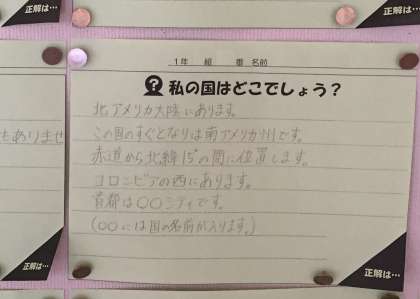 正解は…
正解は…
1年 組 番 名前
? 私の国はどこでしょう?
北アメリカ大陸にあります。
この国のすぐとなりは南アメリカ州です。
赤道から北緯15°の間に位置します。
コロンビアの西にあります。
首都は○○シティです。
(○○には国の名前が入ります。)
もありませ
正解は…
正解は…